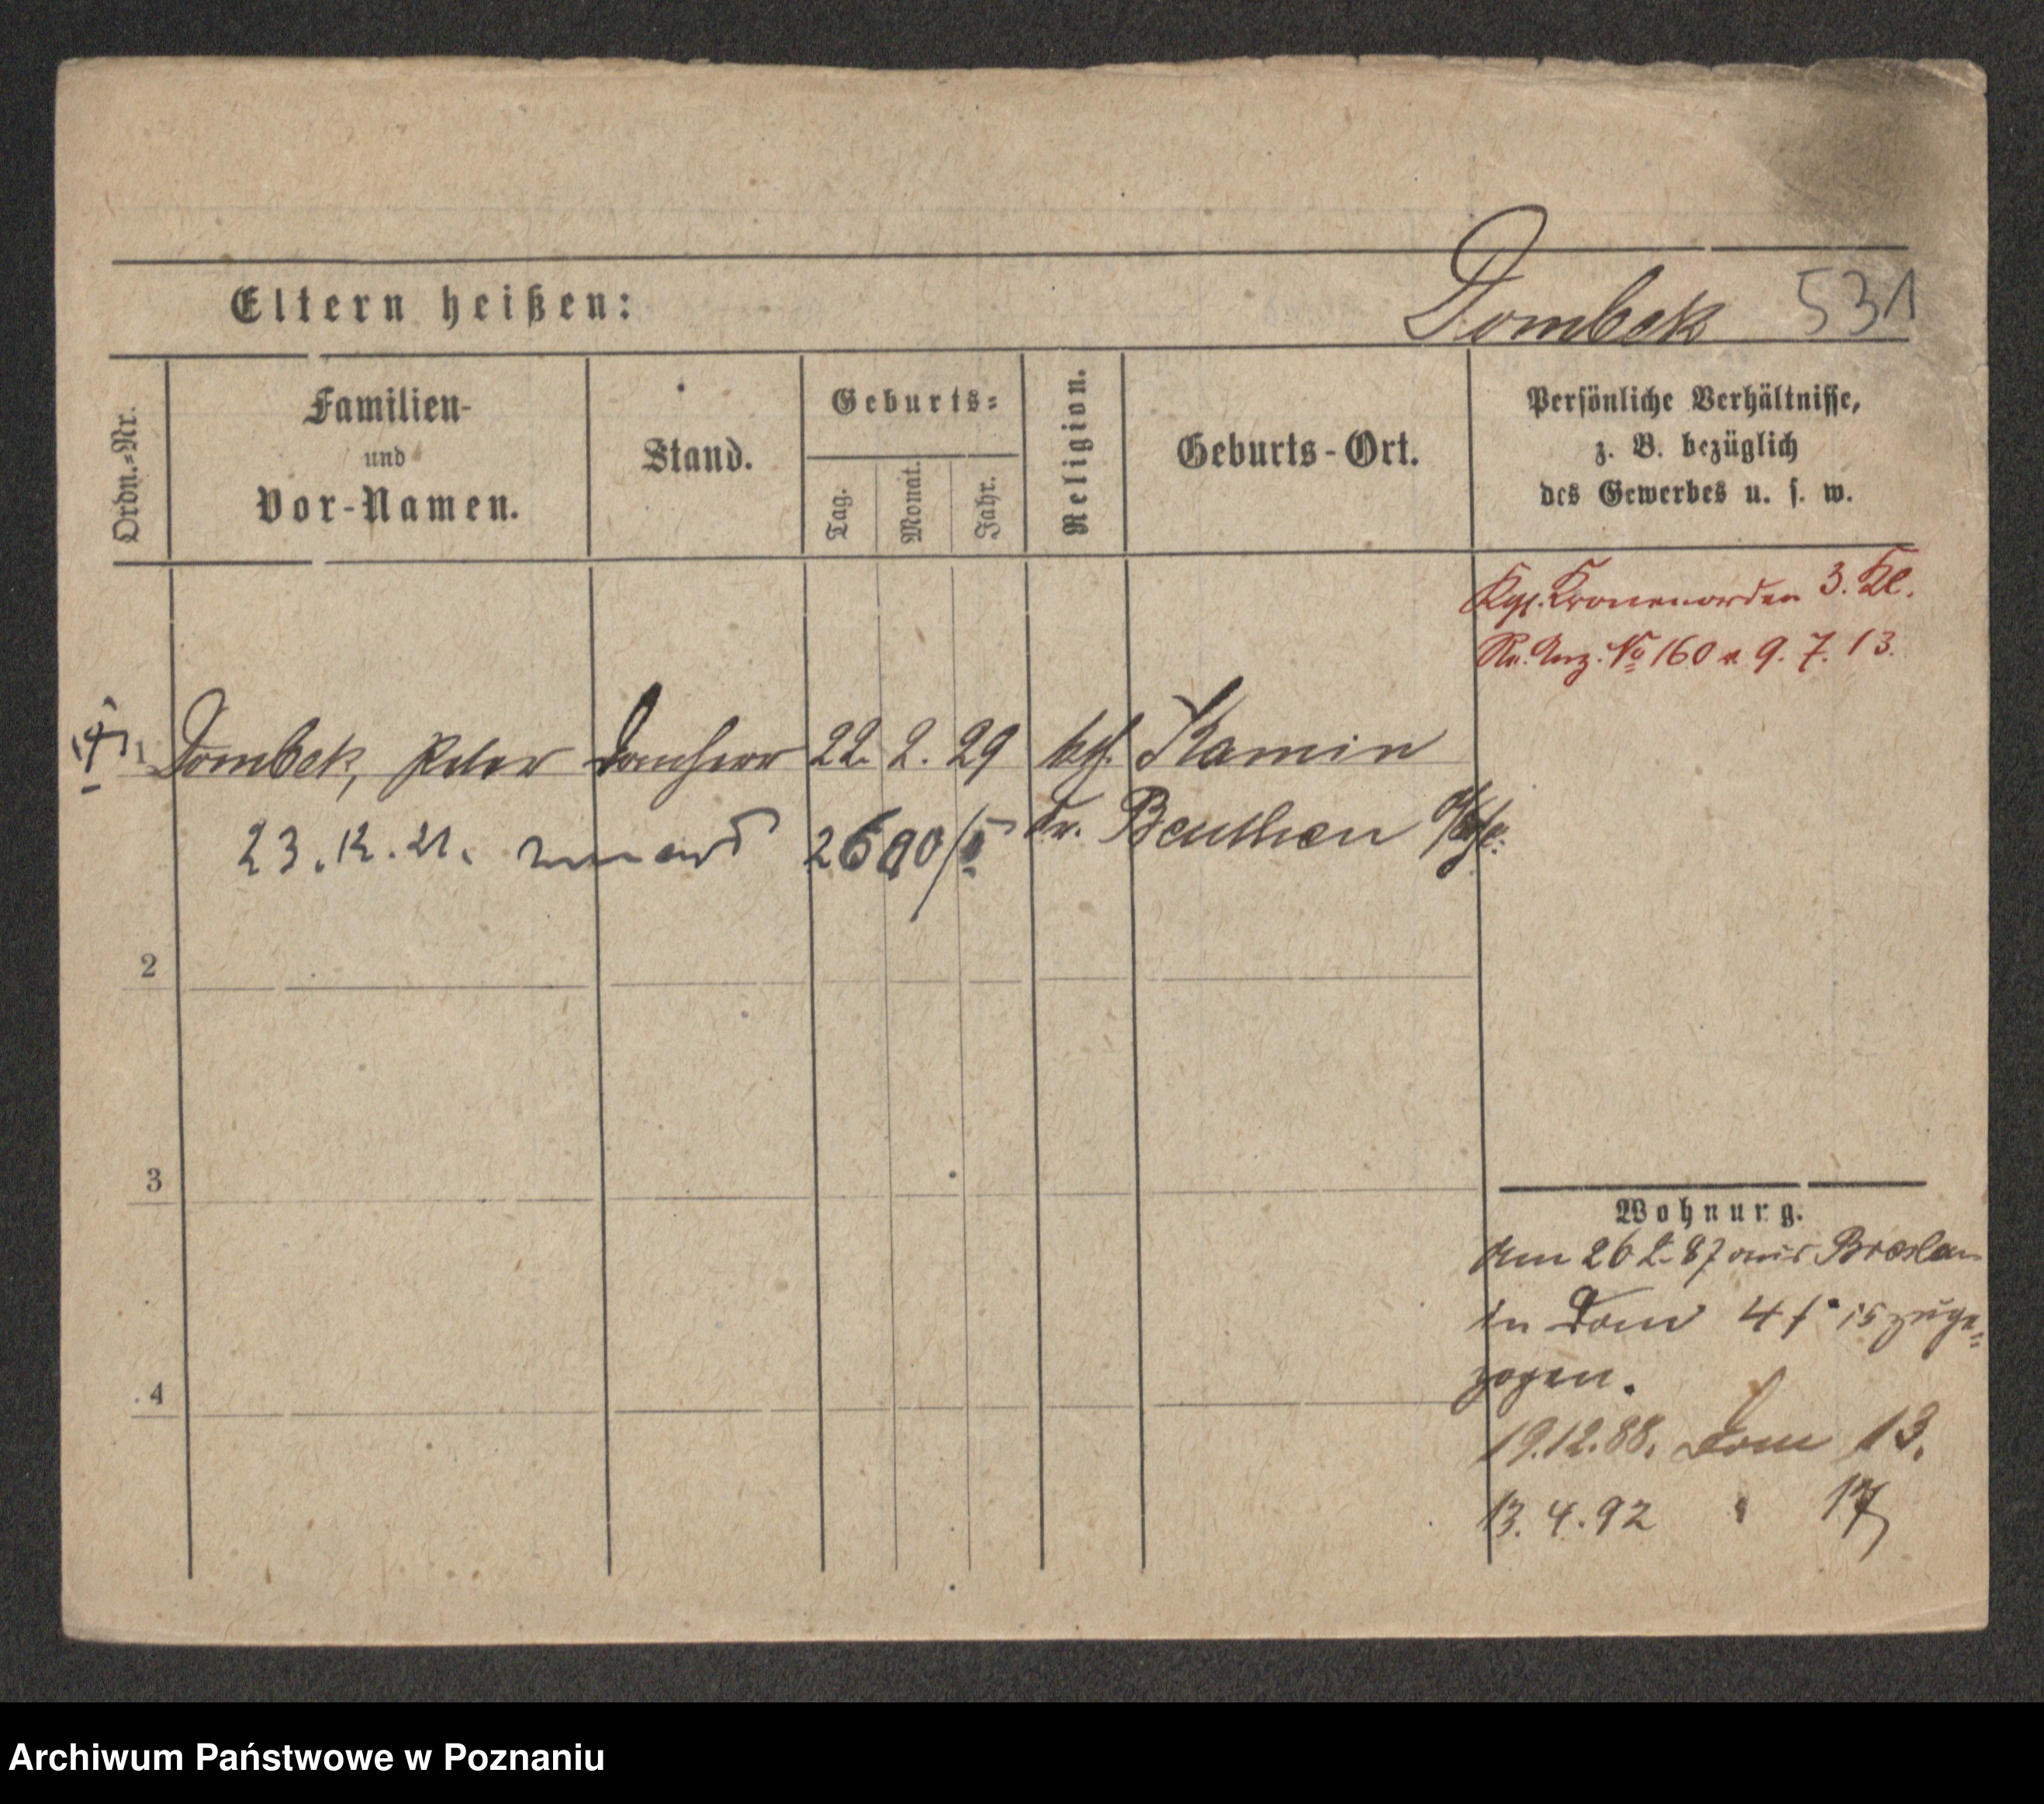 Eltern heißen:
Dombek 531
Ordn.=Nr.
Familien-
und
Vor-Namen.
Stand.
Geburts=
Tag.
Monat.
Jahr.
Religion.
Geburts-Ort.
Persönliche Verhältnisse,
z. B. bezüglich
des Gewerbes u. s. w.
Kgl. Kronenorden 3. Kl.
Anz. No 160 v. 9. 7. 13.
1 Dombek, Peter Domherr 22. 2. 29 kth. Kamin
23. 12. 21. 2600/II Kr. Beuthen
2
3
4
Wohnung.
Am 26 2. 87 aus Breslau
in Dom 4 zuge=
zogen.
19.12.88. Dom 13.
13. 4. 92 " 17
Archiwum Państwowe w Poznaniu